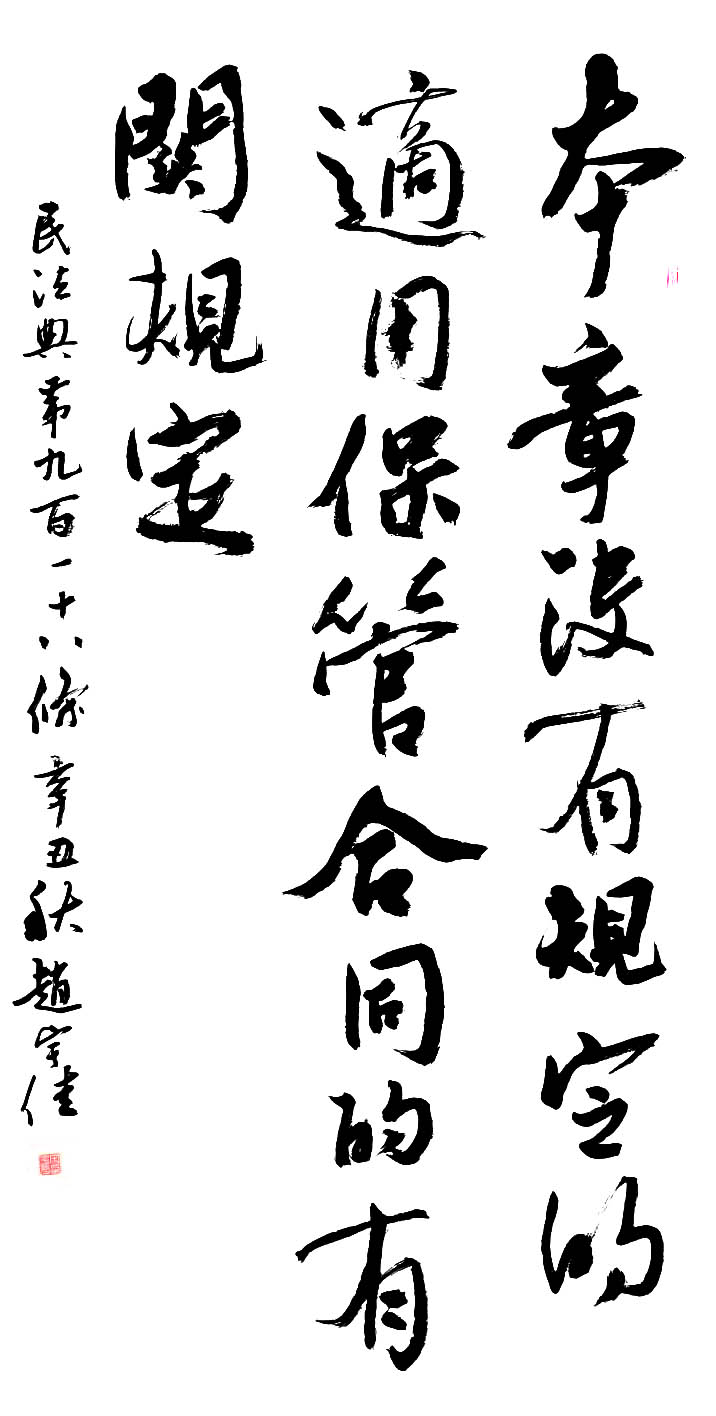 本章沒有規定的
適用保管合同的有
關規定
民法典第九百一十八條 辛丑秋 趙宇佳